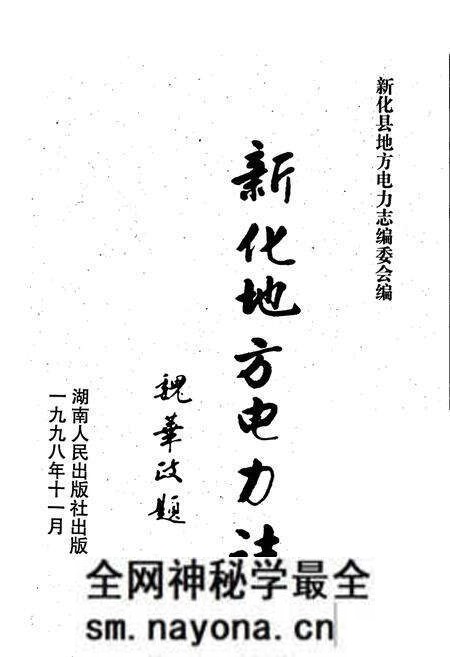 新化县地方电力志编委会编
新化地方电力
魏華政题
湖南人民出版社出版
一九九八年十一月
全网神秘学最全
sm.nayona.cn